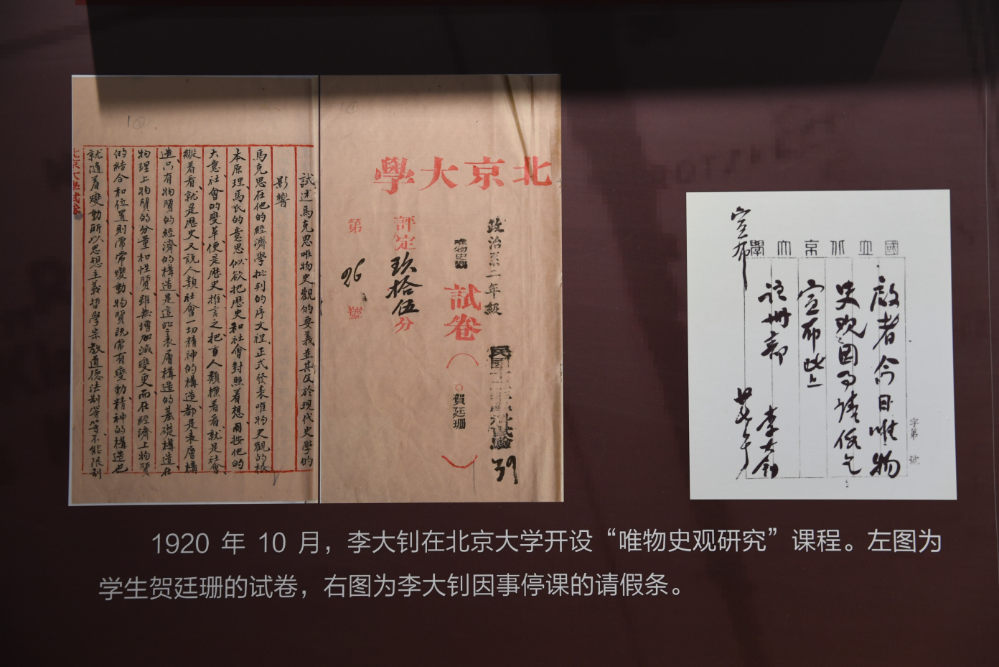 北京大學試卷
試述馬克思唯物史觀的要義並其及於現代史學的
影響
馬克思在他的經濟學批判的序文裡正式發表唯物史觀的根
本原理馬氏的意思似欲把歷史和社會對照着想用按他的
大意社會的變革便是歷史推言之把百人類橫着看就是社會
縱着看就是歷史又說人類社會一切精神的構造都是表層構
造只有物質的經濟的構造是這些表層構造的基礎構造在
物理上物質的分量和性質雖無增加減變更而在經濟上物質
的結合和位置則常常變動物質既常有變動精神的構造也
就隨着變動所以思想主義哲學宗教道德法制等等不能限制
北京大學
政治系二年級
唯物史觀
試卷（賀廷珊）
評定玖拾伍分
第 26 號
39
國立北京大學
啟者今日唯物
史觀因事請假乞
宣布此上
註冊部
李大釗
宣布
字第 號
1920 年 10 月，李大钊在北京大学开设“唯物史观研究”课程。左图为
学生贺廷珊的试卷，右图为李大钊因事停课的请假条。